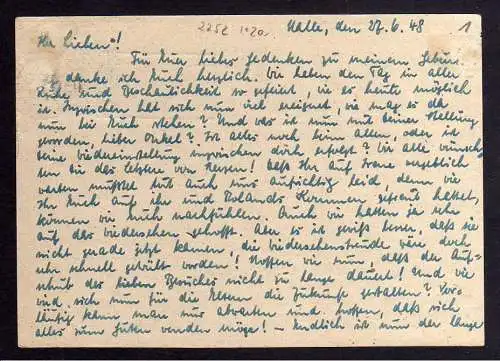 225c 1+20a
Halle, den 27.6.48
1
Ihr Lieben!
Für Euer liebes Gedenken zu meinem Gebur
danke ich Euch herzlich. Wir haben den Tag in aller
Ruhe und Beschaulichkeit so gefeiert, wie es heute möglich
ist. Inzwischen hat sich nun viel ereignet, wie mag es da
nun bei Euch stehen? Und was ist nun mit Deiner Stellung
geworden, lieber Onkel? Ist alles noch beim alten, oder ist
Deine Wiedereinstellung inzwischen doch erfolgt? Wir alle wünsch-
ten Dir das letztere von Herzen! Daß Ihr auf Irene vergeblich
warten mußtet tut auch uns aufrichtig leid, denn wie
Ihr Euch auf ihr und Rolands Kommen gefreut hattet,
können wir Euch nachfühlen. Auch wir hatten ja sehr
auf das Wiedersehen gehofft. Aber es ist gewiß besser, daß sie
nicht gerade jetzt kamen, die Wiedersehensfreude wäre doch
sehr schnell getrübt worden! Hoffen wir nun, daß der Auf-
schub des lieben Besuches nicht zu lange dauert! Und wie
wird sich nun für die Eltern die Zukunft gestalten? Vor-
läufig kann man nur abwarten und hoffen, daß sich
alles zum Guten wenden möge! – Endlich ist nun der lange